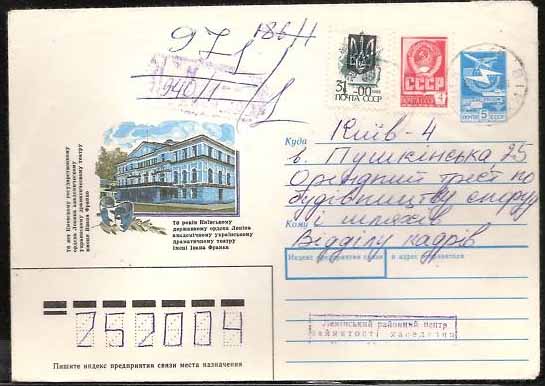 971
186/Н
940/1
31 -00
ПОЧТА СССР
СССР
ПОЧТА
5
Куда
Київ-4
в. Пушкінська 25
Орендний трест по
будівництву споруд
Кому
і шляхів
Відділу кадрів
Индекс предприятия связи и адрес отправителя
70 лет Киевскому государственному
ордена Ленина академическому
украинскому драматическому театру
имени Ивана Франко
70 років Київському
державному ордена Леніна
академічному українському
драматичному театру
імені Івана Франка
252004
Пишите индекс предприятия связи места назначения
Ленінський районний центр
зайнятості населення